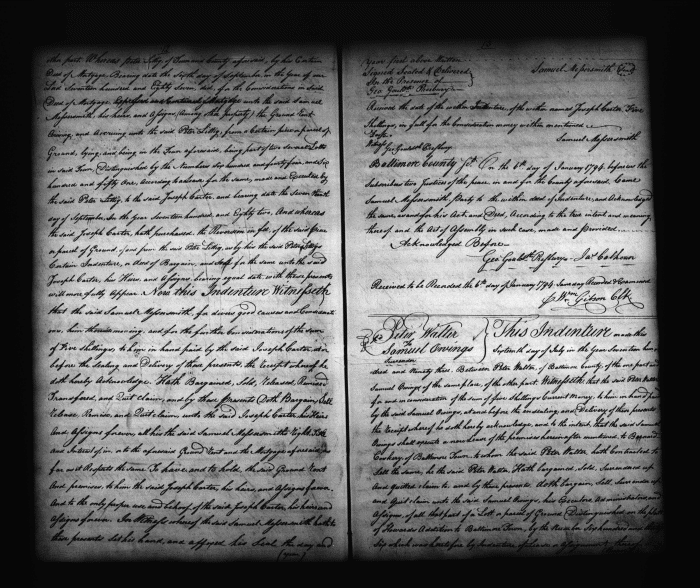 the part Whereas Peter Litzy of Same County aforesaid, by his Certain
Deed of Mortgage Bearing date the Sixth day of September in the Year of our
Lord Seventeen hundred and Eighty Seven did for the Considerations in Said
Deed of Mortgage unto the said Samuel
Messersmith, his heirs and Assigns (among other property) the Ground Rent
Arising, and Accruing unto the said Peter Litzy, from a Certain piece or parcel of
Ground, lying and being in the Town aforesaid, being part of two Lotts
in said Town, Distinguished by the Numbers Six hundred and forty four, and Six
hundred and fifty One, According to a lease for the same, made and Executed by
the said Peter Litzy, to the said Joseph Carter, and bearing date the Seventh
day of September in the Year Seventeen hundred, and Eighty two, And whereas
the said Joseph Carter, hath purchased, the Reversion in fee, of the said piece
or parcel of Ground, of and from the said Peter Litzy, as by his the said Peter Litzys
Certain Indenture, or Deed of Bargain, and Sale for the same unto the said
Joseph Carter, his Heirs, and Assigns, bearing equal date with these presents
will more fully Appear Now this Indenture Witnesseth
that the said Samuel Messersmith, for divers good causes and Considerati
ons, him thereunto moving, and for the further Consideration of the Sum
of Five shillings, to him in hand paid by the said Joseph Carter, at or
before the Sealing and Delivery of these presents, the Receipt whereof he
doth hereby Acknowledge, Hath Bargained, Sold, Released, Remised
Transferred, and Quit claim, and by these presents Doth Bargain, Sell
Release Remise and Quit claim, unto the said Joseph Carter, his Heirs
and Assigns forever, all his the said Samuel Messersmiths Right, Title
and Interest of, in, unto the aforesaid Ground Rent and the Mortgage aforesaid, so
far as it Respects the same To have, and to hold, the said Ground Rent
And premises, to him the said Joseph Carter, his heirs, and Assigns forever,
And to the only proper use and behoof, of the said Joseph Carter, his heirs and
Assigns forever. In Witness whereof the said Samuel Messersmith hath to
these presents set his hand, and affixed his Seal the day and
(year)
Year first above Written
Signed Sealed & Delivered
In the Presence of
Geo: Gouldh. Presbury
Samuel Messersmith Seal
Received the date of the within Indenture, of the within named Joseph Carter Five
Shillings, in full for the consideration money within mentioned
Teste
Geo: Gouldh. Presbury
Samuel Messersmith
Baltimore County Sct. On the 6th day of January 1794, before us the
Subscribers two Justices of the peace, in and for the County aforesaid, Came
Samuel Messersmith, Party to the within deed or Indenture, and Acknowledged
the same, as and for his Act and Deed, According to the true intent and meaning
thereof and the Act of Assembly in such case, made and provided
Acknowledged Before
Geo: Gouldh. Presbury. Jas. Calhoun
Received to be Recorded the 6th day of January 1794. Same day Recorded & Examined
Wm. Gibson Clk
Peter Walter
To
Samuel Owings
Surrender
This Indenture made this
Sixteenth day of July in the Year Seventeen hun
dred and Ninety three. Between Peter Walter, of Baltimore County, of the one part and
Samuel Owings of the same place, of the other part Witnesseth that the said Peter Walter
for and in consideration of the sum of five Shillings Current Money, to him in hand paid
by the said Samuel Owings, at and before the ensealing and Delivery of these presents
the Receipt whereof he doth hereby acknowledge, and to the intent, that the said Samuel
Owings shall execute a new Lease of the premises hereinafter mentioned to Bernard
Coskery of Baltimore Town, to whom the said Peter Walter hath Contracted to
Sell the same, he the said Peter Walter Hath bargained, Sold, Surrendered up
And Quitted claim to and by these presents doth bargain, Sell, Surrender up
and Quit claim unto the said Samuel Owings, his Executors Administrators and
Assigns, all that part of a Lott or parcel of Ground, Distinguished on the plat
of Howards Addition to Baltimore Town, by the Number Six hundred and
Six which was heretofore by Indenture of Lease